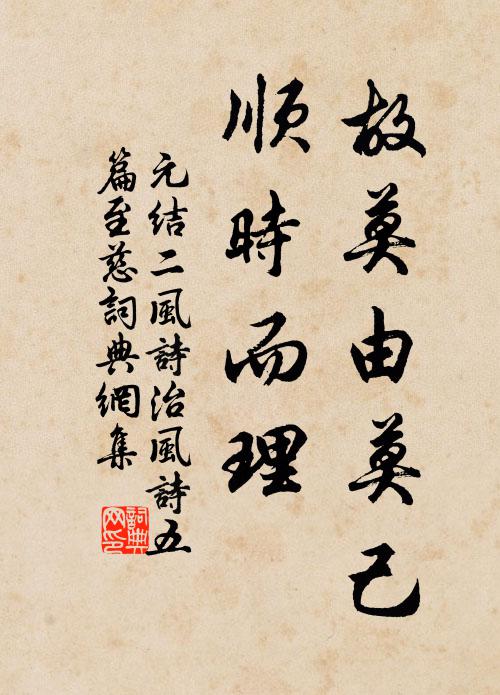 故莫由莫己
順時而理
元结二風詩治風詩五
篇至慈詞典網集
詞典
网印